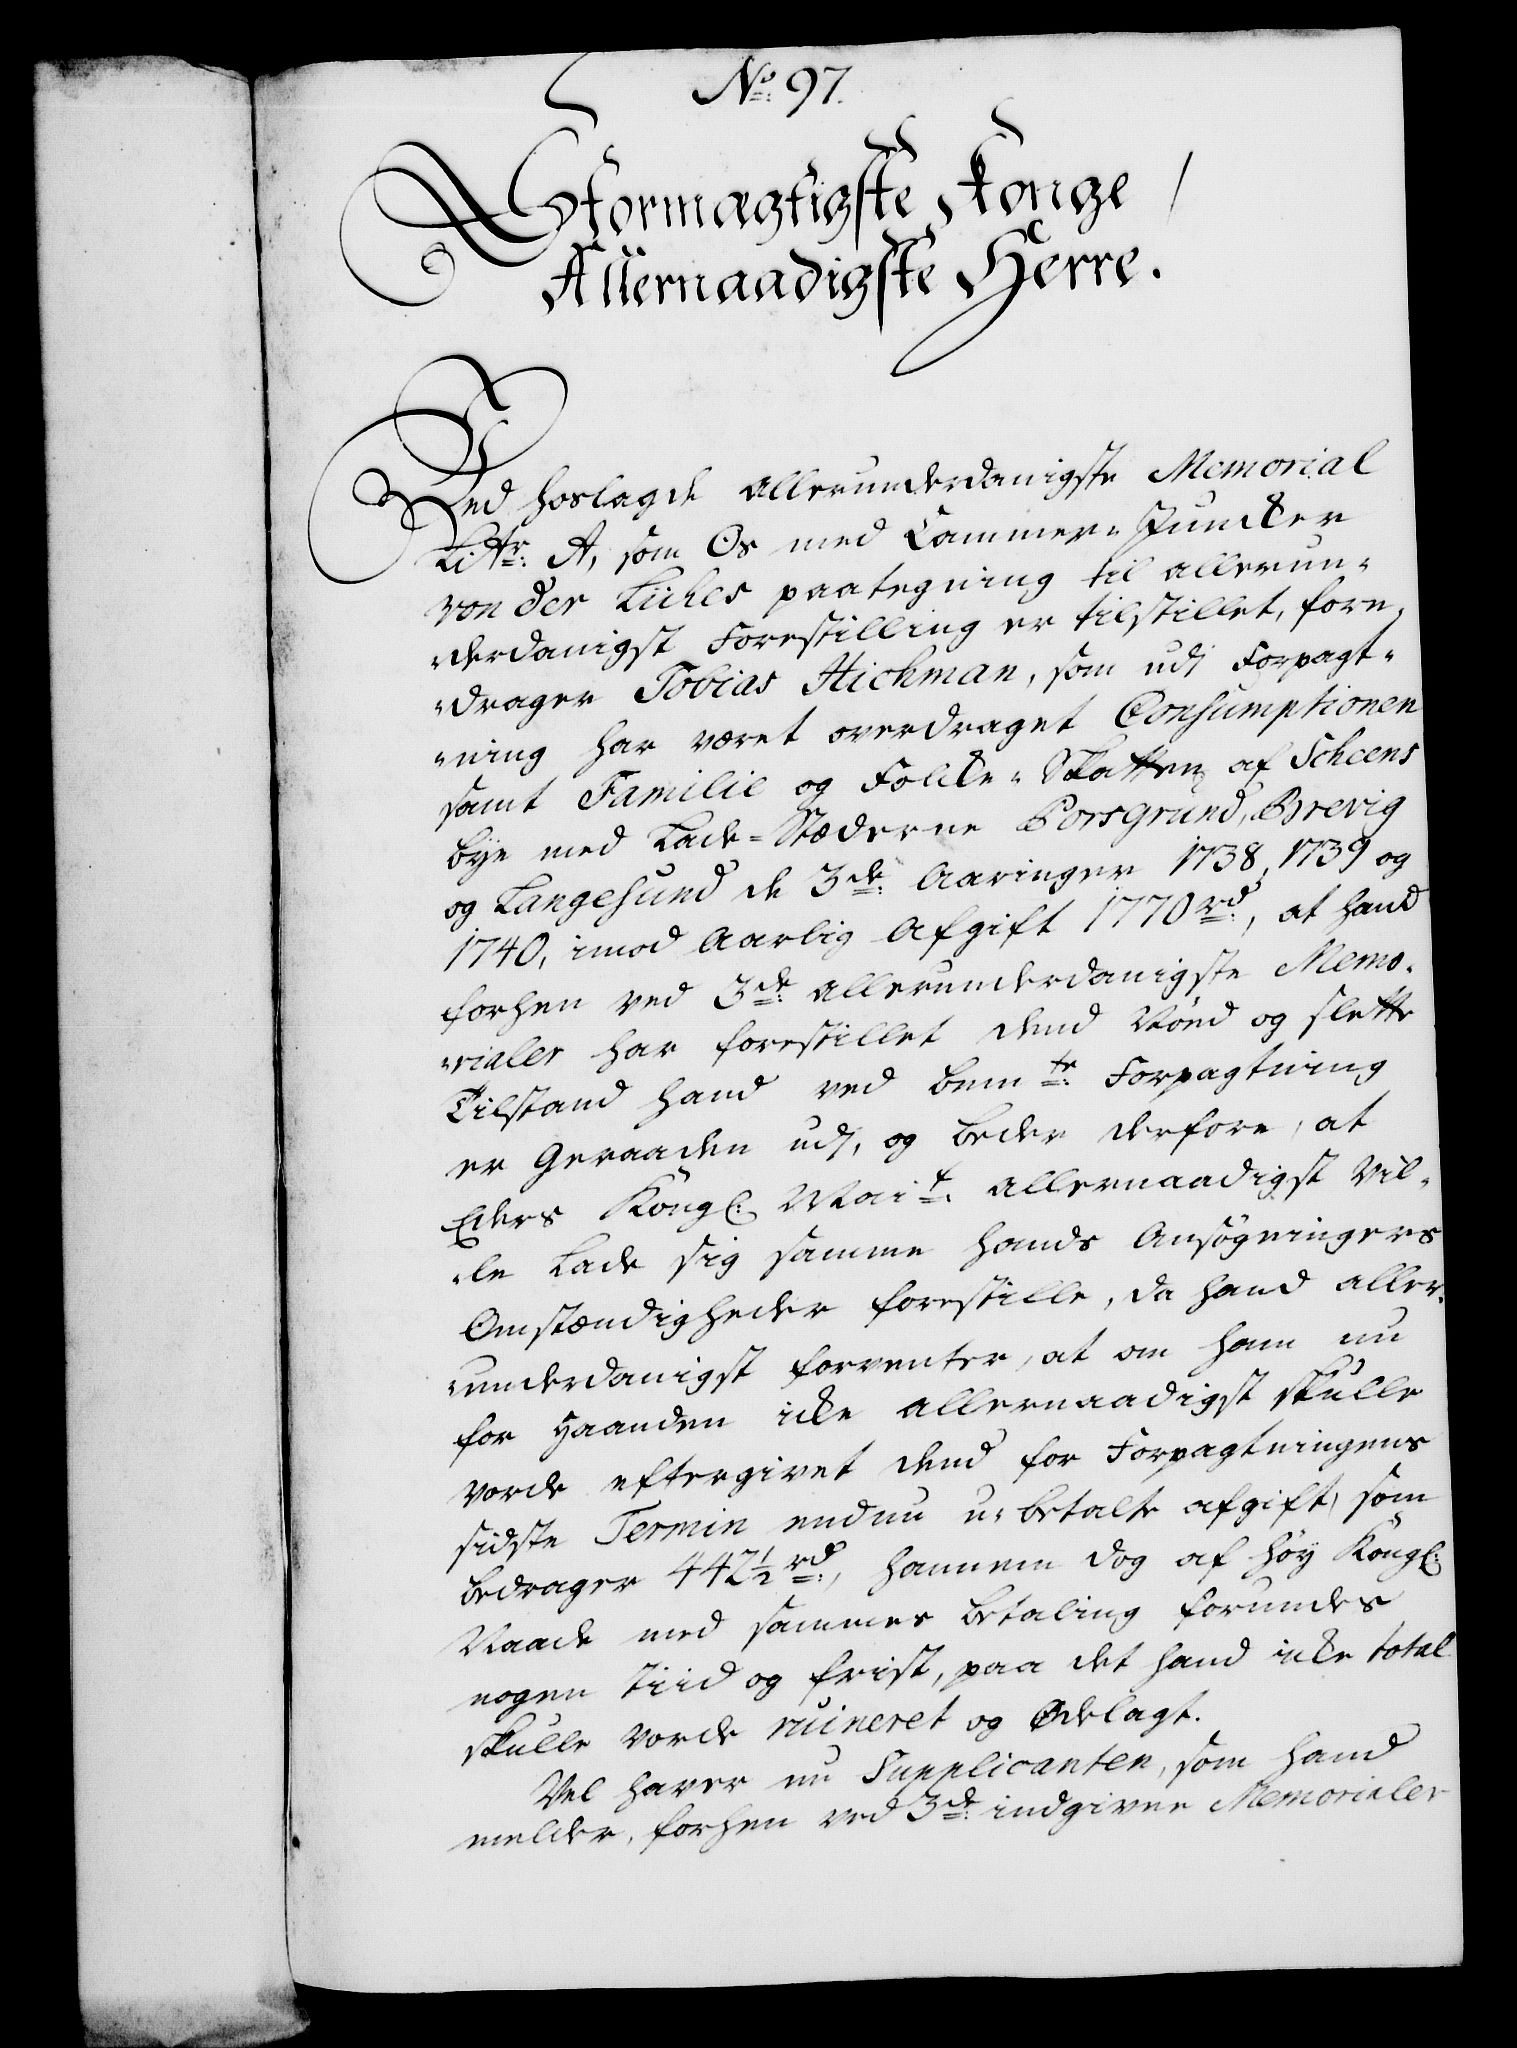 No: 97.
Stormægtigste Konge /
Allernaadigste Herre.
Ved hoslagde allerunderdanigste Memorial
Littr: A, som Os med Cammer-Juncker
von der Lühes paategning til allerun-
-derdanigst Forestilling er tilstillet, fore-
-drager Tobias Hichman, som udi Forpagt-
-ning har været overdraget Consumptionen
samt Familie og Folcke-Skatten af Scheens
bye med Lade-Stæderne Porsgrund, Brevig
og Langesund de 3de: Aaringer 1738, 1739 og
1740, imod Aarlig Afgift 1770 rd:, at hand
forhen ved 3de: allerunderdanigste Memo-
-rialer har forestillet dend Nöed og slette
Tilstand hand ved bemte: Forpagtning
er Geraaden udi, og beder derfore, at
Eders Kongl: Mait: allernaadigst vil-
-le lade sig samme hands Ansøgningers
Omstændigheder forestille, da hand aller-
-underdanigst forventer, at om ham nu
for Haanden icke allernaadigst skulle
vorde eftergivet dend for Forpagtningens
sidste Termin endnu u-betalte afgift, som
bedrager 442½ rd:, hannem dog af høy Kongl:
Naade med sammes betaling forundes
nogen tiid og frist, paa det hand icke total
skulle vorde ruineret og Ødelagt.
Vel haver nu Supplicanten, som hand
melder, forhen ved 3de: indgivne Memorialer